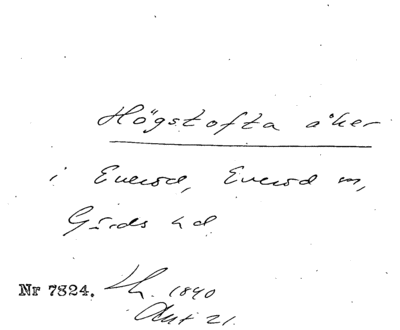 Högstofta åker
i Everöd, Everöd sn,
Gärds hd
Nr 7824. Lh. 1840
Akt 21.